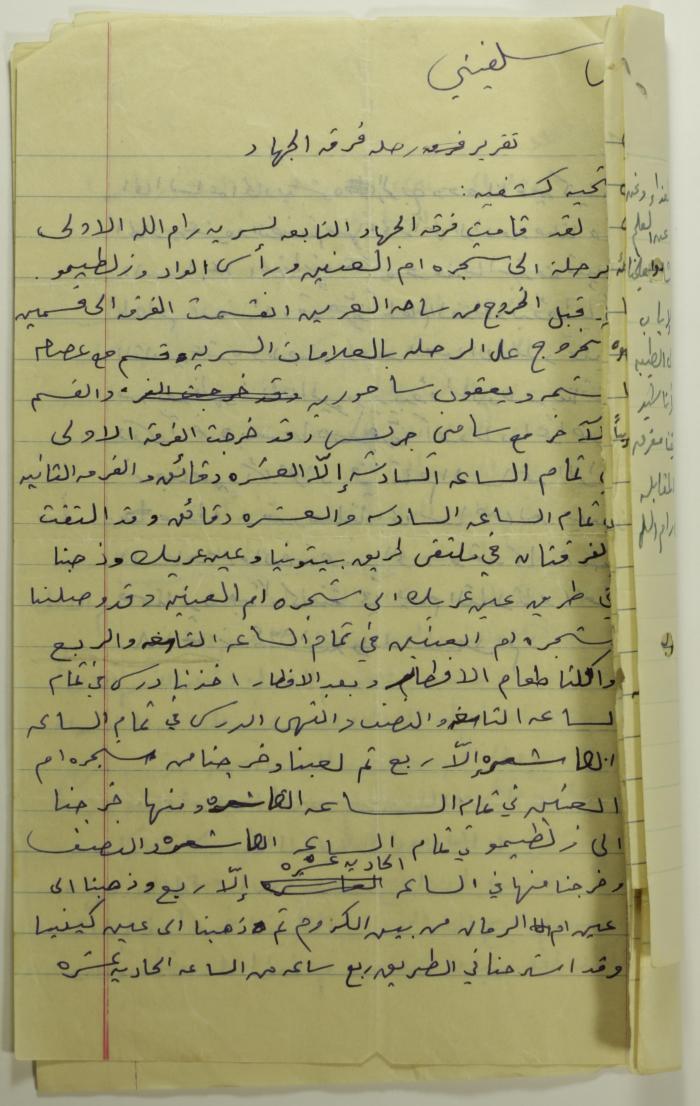 سلفيتي
تقرير رحله فرقه الجهاد
تحيه كشفيه :
لقد قامت فرقه الجهاد التابعه لسريه رام الله الاولى
برحلة الى شجره ام العنين ورأس الواد وزلطيمو.
قبل الخروج من ساحه انقسمت الفرقه الى قسمين
خروج على الرحله بالعلامات السريه قسم مع عصام
شمه ويعقوب ساحوريه وقد خرجت الفر والقسم
الآخر مع سامي جريس وقد خرجت الفرقة الاولى
تمام الساعه السادسه إلاّ العشره دقائق و الفرقه الثانيه
تمام الساعه السادسه والعشره دقائق وقد التقت
لفرقتان في ملتقى طريق بيتونيا وعين عريك وذهبنا
في طريق عين عريك الى شجره ام العنين وقد وصلنا
شجره ام العنين في تمام الساعه الثامنه والربع
واكلنا طعام الافطار وبعد الافطار اخذنا درس في تمام
لساعه الثامنه والنصف وانتهى الدرس في تمام الساعه
العاشره إلاّ ربع ثم لعبنا وخرجنا من شجره ام
العنين في تمام الساعه العاشره ومنها خرجنا
الى زلطيمو في تمام الساعه العاشره والنصف
الحاديه عشره
وخرجنا منها في الساعه العاشره إلاّ ربع وذهبنا الى
عين ام الرمان من بين الكروم ثم ذهبنا الى عين كينيا
وقد استرحنا في الطريق ربع ساعه من الساعه الحاديه عشره